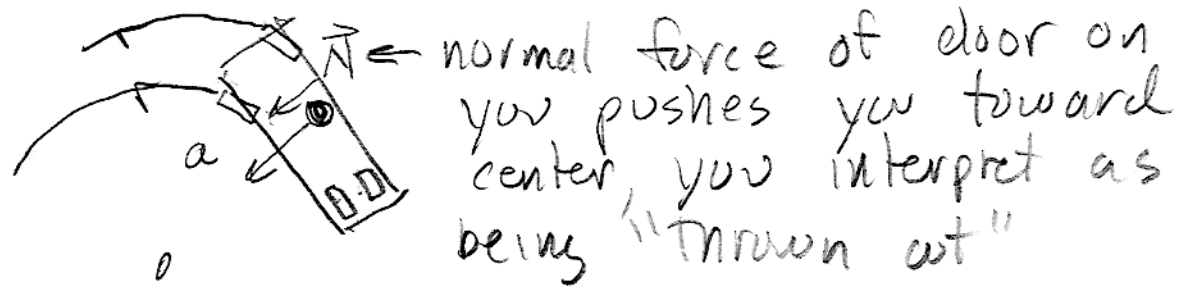 N ← normal force of door on
you pushes you toward
a center, you interpret as
being "thrown out"
0